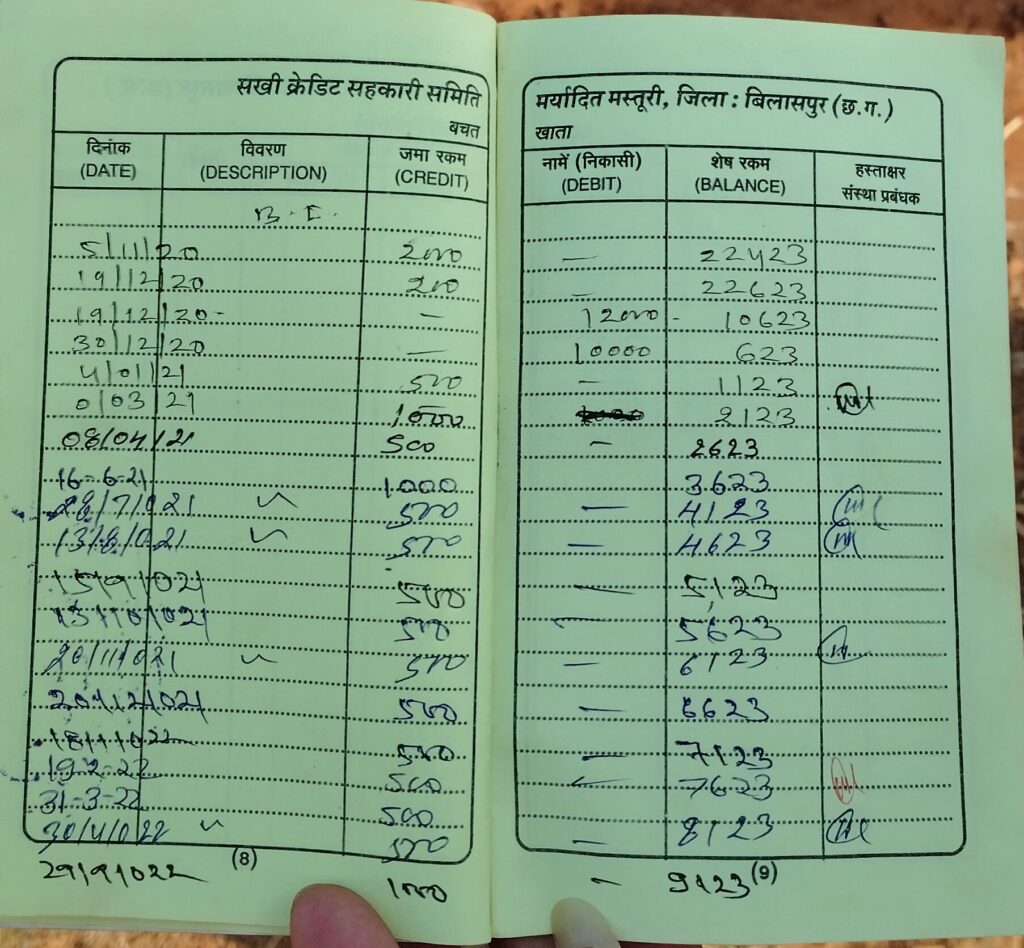 सखी क्रेडिट सहकारी समिति मर्यादित मस्तूरी, जिला : बिलासपुर (छ.ग.)
बचत खाता
दिनांक विवरण जमा रकम नामें (निकासी) शेष रकम हस्ताक्षर
(DATE) (DESCRIPTION) (CREDIT) (DEBIT) (BALANCE) संस्था प्रबंधक
B.F.
5/11/20 2000 — 22423
19/12/20 200 — 22623
19/12/20- — 12000 - 10623
30/12/20 — 10000 623
4/01/21 500 — 1123
0/03/21 1000 2123
08/04/21 500 — 2623
16-6-21 1000 3623
28/7/021 500 — 4123
13/8/021 500 — 4623
15/9/021 500 — 5123
13/10/021 500 — 5623
20/11/021 500 — 6123
20/12/021 500 — 6623
18/1/022 500 — 7123
19-2-22 500 — 7623
31-3-22 500
30/4/022 500 — 8123
29/9/022 1000 — 9123
(8) (9)